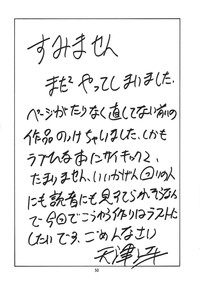 すみません
またやってしまいました。
ページがたりなく直してない前の
作品のっけちゃいました。しかも
ラブひな本にサイキック2、
たまりません、いいかげん の人
にも読者にも見すてられそうなん
で今回でこうゆう作りはラストに
したいです。ごめんなさい